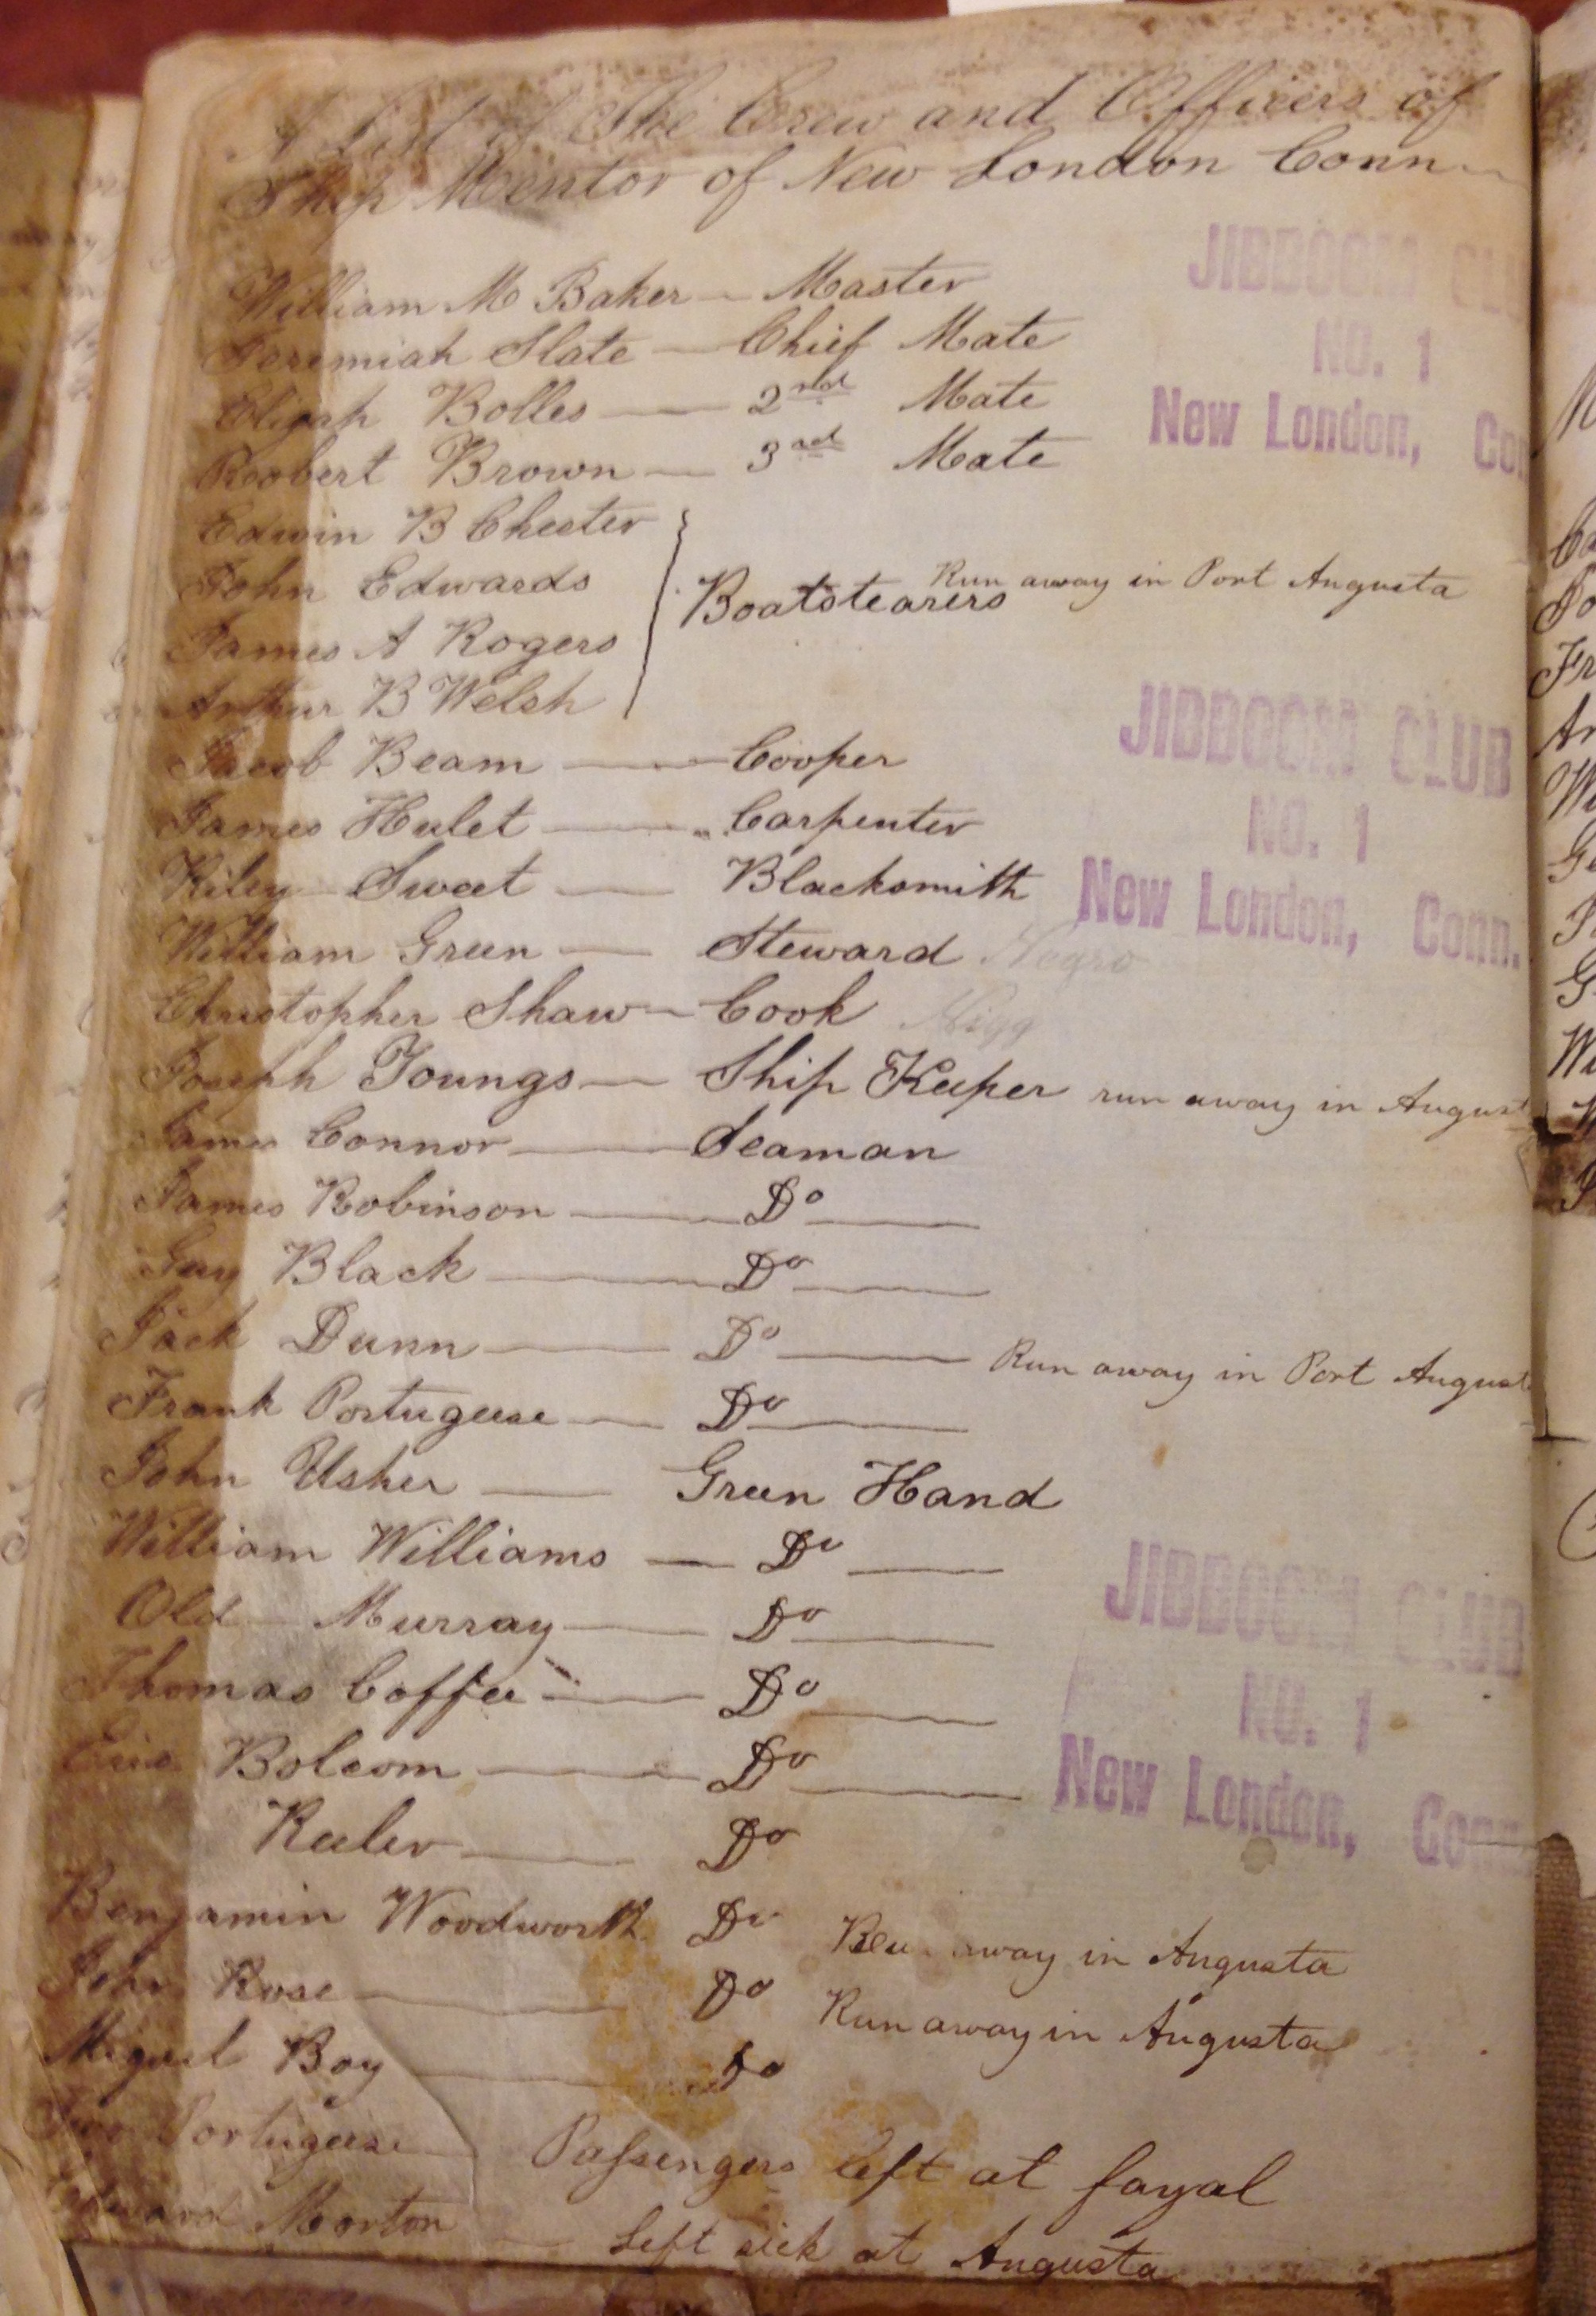 A List of The Crew and Officers of
Ship Mentor of New London Conn
William M Baker — Master
Jeremiah Slate — Chief Mate
Elijah Bolles — 2nd Mate
Robert Brown — 3rd Mate
Edwin B Chester
John Edwards
Boatstearers Run away in Port Augusta
James A Rogers
Arthur B Welsh
Jacob Beam — Cooper
James Hulet — Carpenter
Riley Sweet — Blacksmith
William Green — Steward Negro
Christopher Shaw — Cook Nigg
Joseph Youngs — Ship Keeper run away in August
James Connor — Seaman
James Robinson — Do
Black — Do
Jack Dunn — Do — Run away in Port August
Frank Portugeese — Do
John Usher — Green Hand
William Williams — Do
Old Murray — Do
Thomas Coffee — Do
Bolcom — Do
Keeler — Do
Benjamin Woodworth Do away in Augusta
John Rose — Do Run away in Augusta
Miguel Boy — Do
Portugeese Passengers left at fayal
Edward Morton — Left sick at Augusta
JIBBOOM CLU
NO. 1
New London, Con
JIBBOOM CLUB
NO. 1
New London, Conn.
JIBBOOM CLUB
NO. 1
New London, Conn